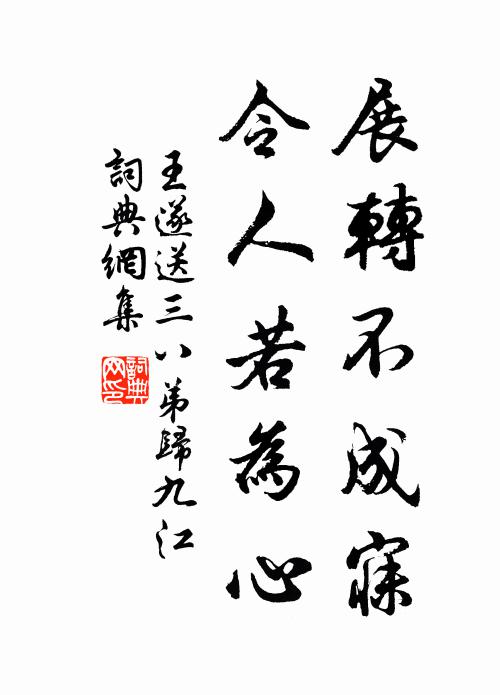 展轉不成寐
令人若為心
王遂送三八弟歸九江
詞典網集
詞典網印